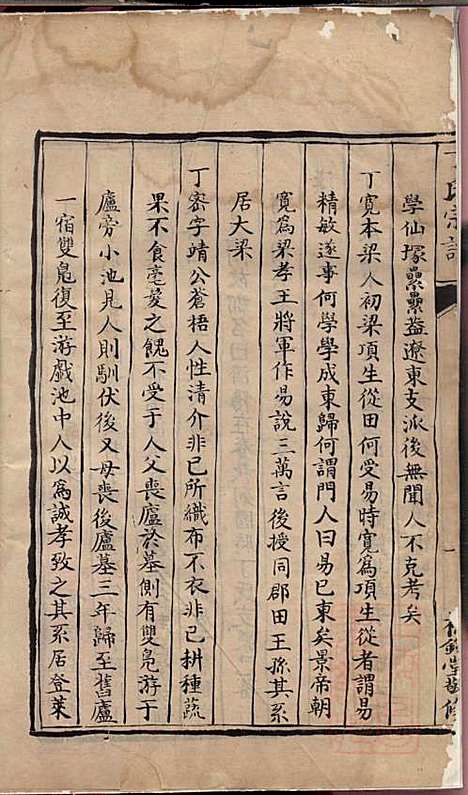 丁氏宗譜
學仙塚纍纍蓋遼東支派後無聞人不克考矣
丁寬本梁人初梁項生從田何受易時寬為項生從者謂易
精敏遂事何學學成東歸何謂門人曰易已東矣景帝朝
寬為梁孝王將軍作易說三萬言後授同郡田王孫其系
居大梁
丁密字靖公蒼梧人性清介非己所織布不衣非己耕種蔬
果不食毫髮之餽不受于人父喪廬於墓側有雙鳧游于
廬旁小池見人則馴伏後又母喪後廬墓三年歸至舊廬
一宿雙鳧復至游戲池中人以為誠孝致之其系居登萊